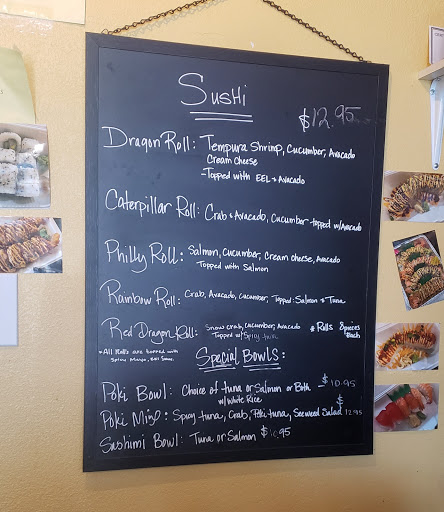 Sushi
$12.95
Dragon Roll: Tempura Shrimp, Cucumber, Avocado
Cream cheese
-Topped with EEL & Avocado
Caterpillar Roll: Crab & Avocado, Cucumber topped w/Avocado
Philly Roll: Salmon, Cucumber, Cream cheese, Avocado
Topped with Salmon
Rainbow Roll: Crab, Avocado, cucumber, Topped: Salmon & Tuna
Red Dragon Roll: Snow crab, Cucumber, Avocado * Rolls 8pieces
Topped w/ Spicy tuna Each
* All Rolls are topped with
Spicy Mayo, Eel Sauce.
Special Bowls:
Poki Bowl: Choice of tuna or Salmon or Both - $10.95
w/ White Rice
Poki Mix: Spicy tuna, Crab, Poki tuna, Seaweed Salad $12.95
Sashimi Bowl: Tuna or Salmon $